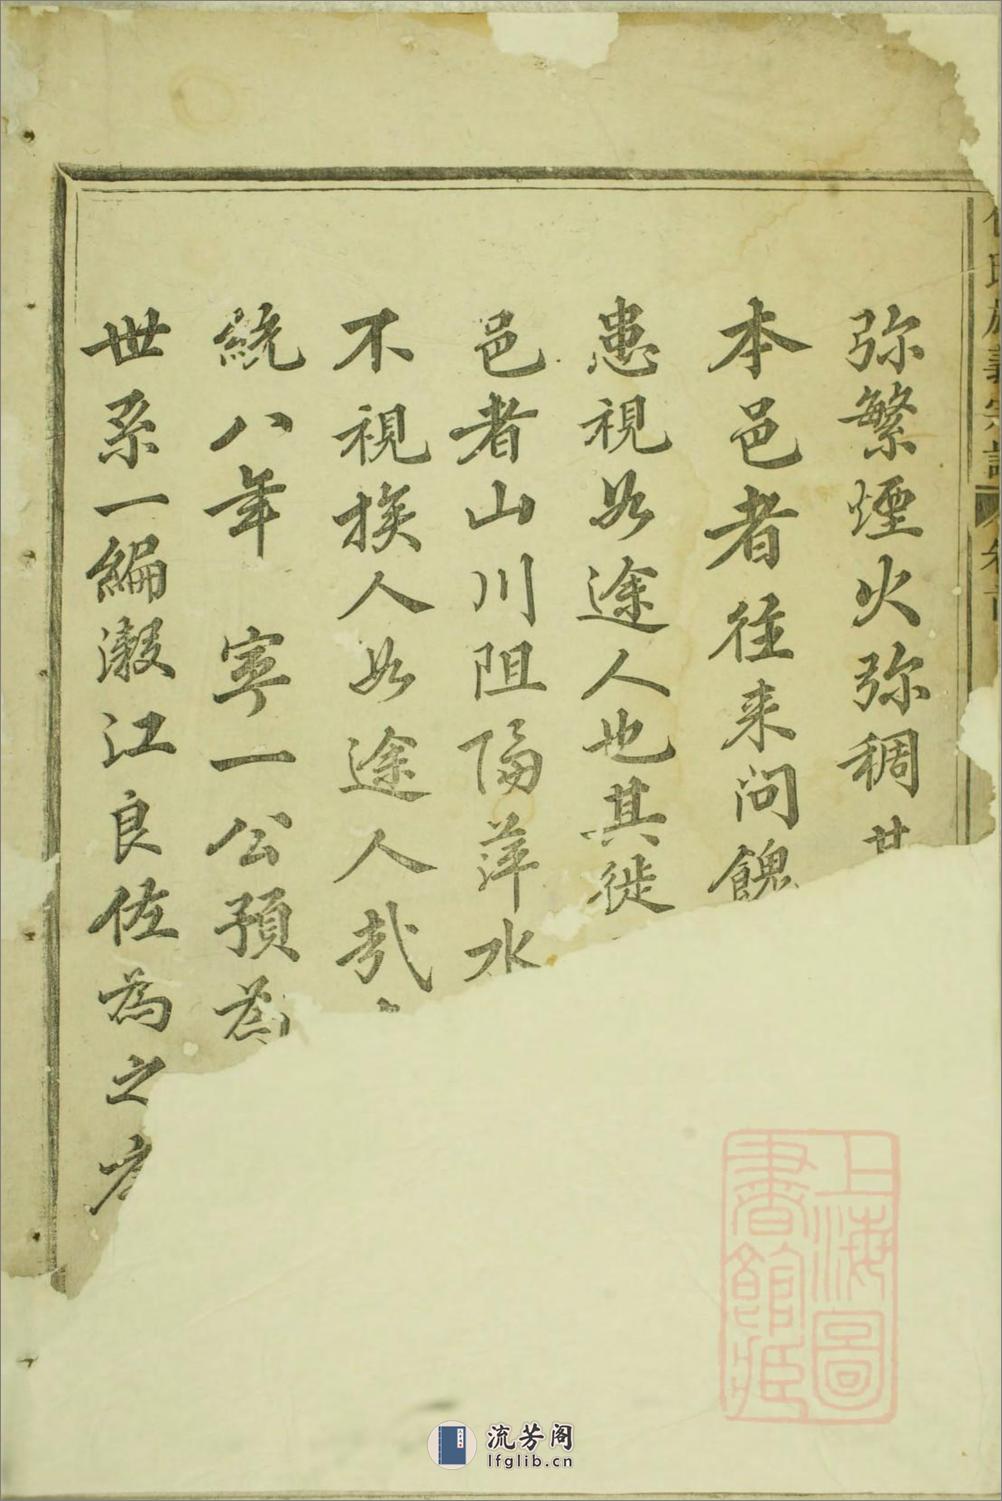 弥繁煙火弥稠其
本邑者往来问餽
患視如途人也其徙
邑者山川阻隔萍水
不視族人如途人哉
統八年 寧一公預為
世系一編瀫江良佐為之序
氏族義宗譜 卷首
上海圖書館藏
流芳阁
lfglib.cn